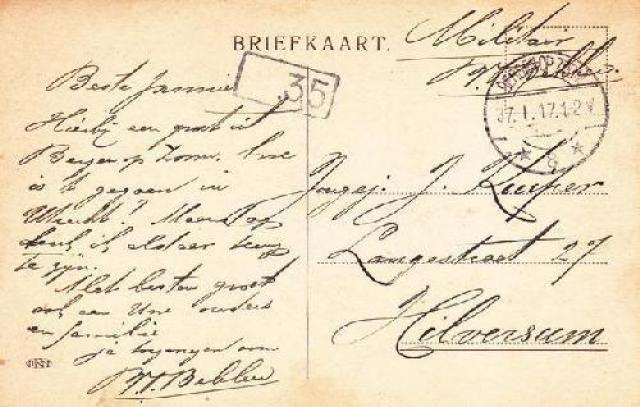 BRIEFKAART.
Militair
35
BERGEN OP ZOOM
27.1.17.1-2V
* 8 *
Beste Jannie
Hierbij een groet uit
Bergen op Zoom. Hoe
is 't gegaan in
Utrecht? Maandag
denk ik alweer terug
te zijn.
Met besten groet
ook aan Uwe ouders
en familie
Jongej. J. Kuiper
Langestraat 27
Hilversum